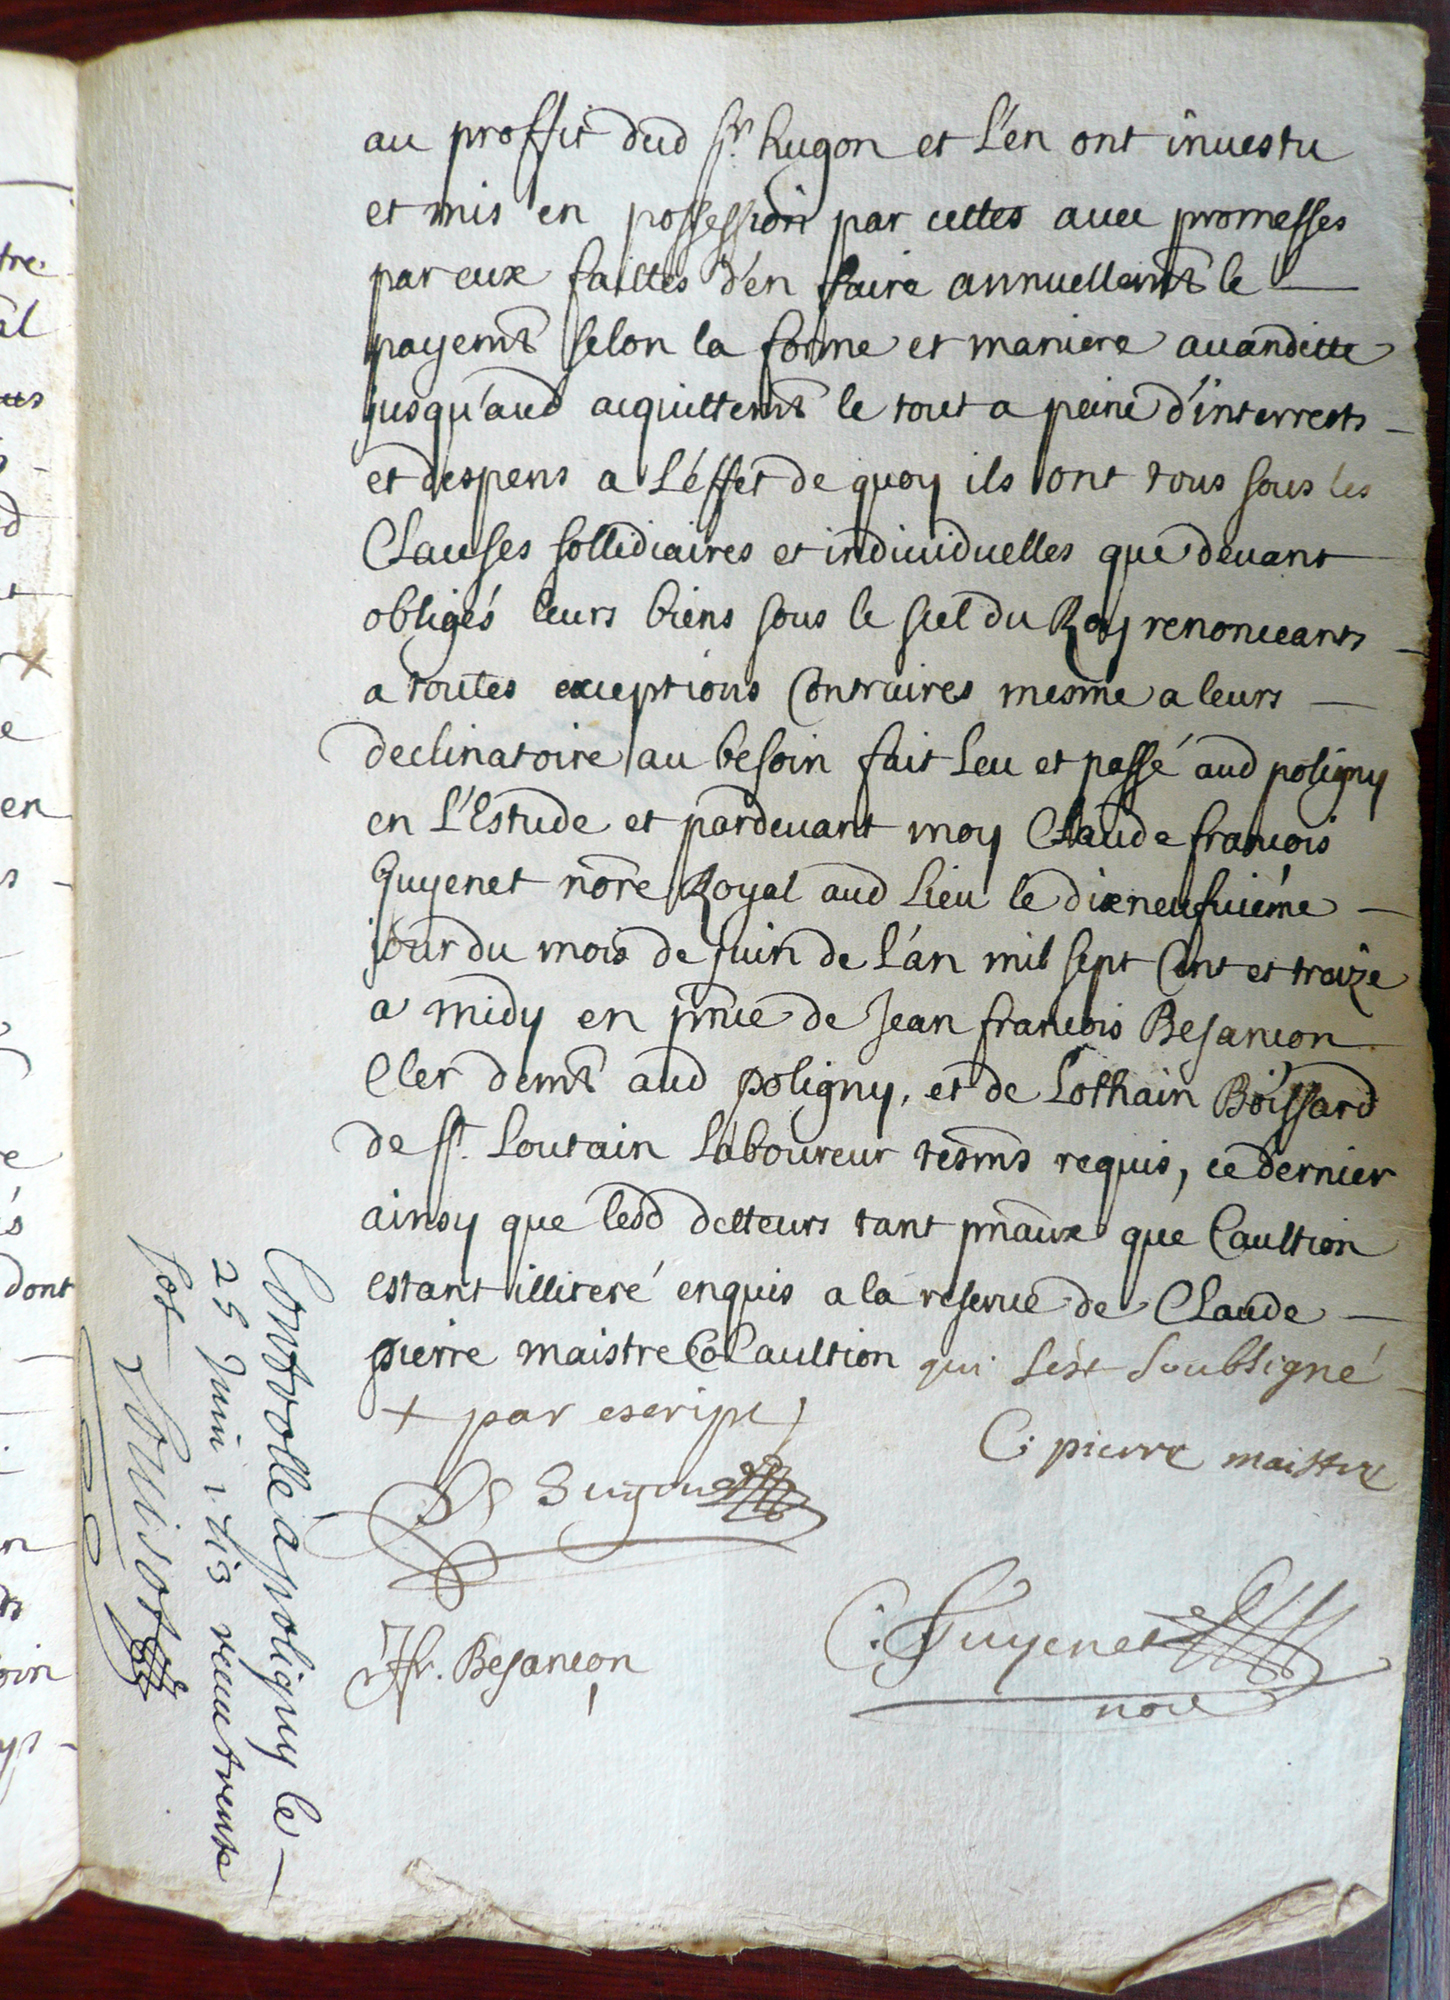 au proffit dud Sr. hugon et L'en ont inuestu
et mis en possession par cettes auec promesses
par eux faittes d'en faire annuellemt le
payemt selon la forme et maniere auanditte
jusqu'aud acquittemt le tout a peine d'interrests
et despens a L'effet de quoy ils ont tous sous les
Clauses sollidiaires et indiuiduelles que deuant
obligés leurs biens sous le scel du Roy renonceants
a toutes exceptions Contraires mesme a leurs
declinatoire au besoin fait Leu et passé aud poligny
en L'Estude et pardeuant moy Claude francois
Guyenet nore Royal aud Lieu le dixneufuiéme
jour du mois de juin de L'an mil sept Cent et treize
a midy en pnce de Jean francois Besancon
Cler demt aud poligny, et de Lothain Boissard
de St. Loutain Laboureur tesms requis, ce dernier
ainsy que lesd detteurs tant pnaux que Caultion
estant illiteré enquis a la reserue de Claude
pierre maistre Co Caultion qui s'est soubsigné
+ par escript
C: pierre maistre
hugon
C: Guyenet
nore
JFr. Besancon
Controllé a poligny le
25 Juin 1713 receu trente
sols